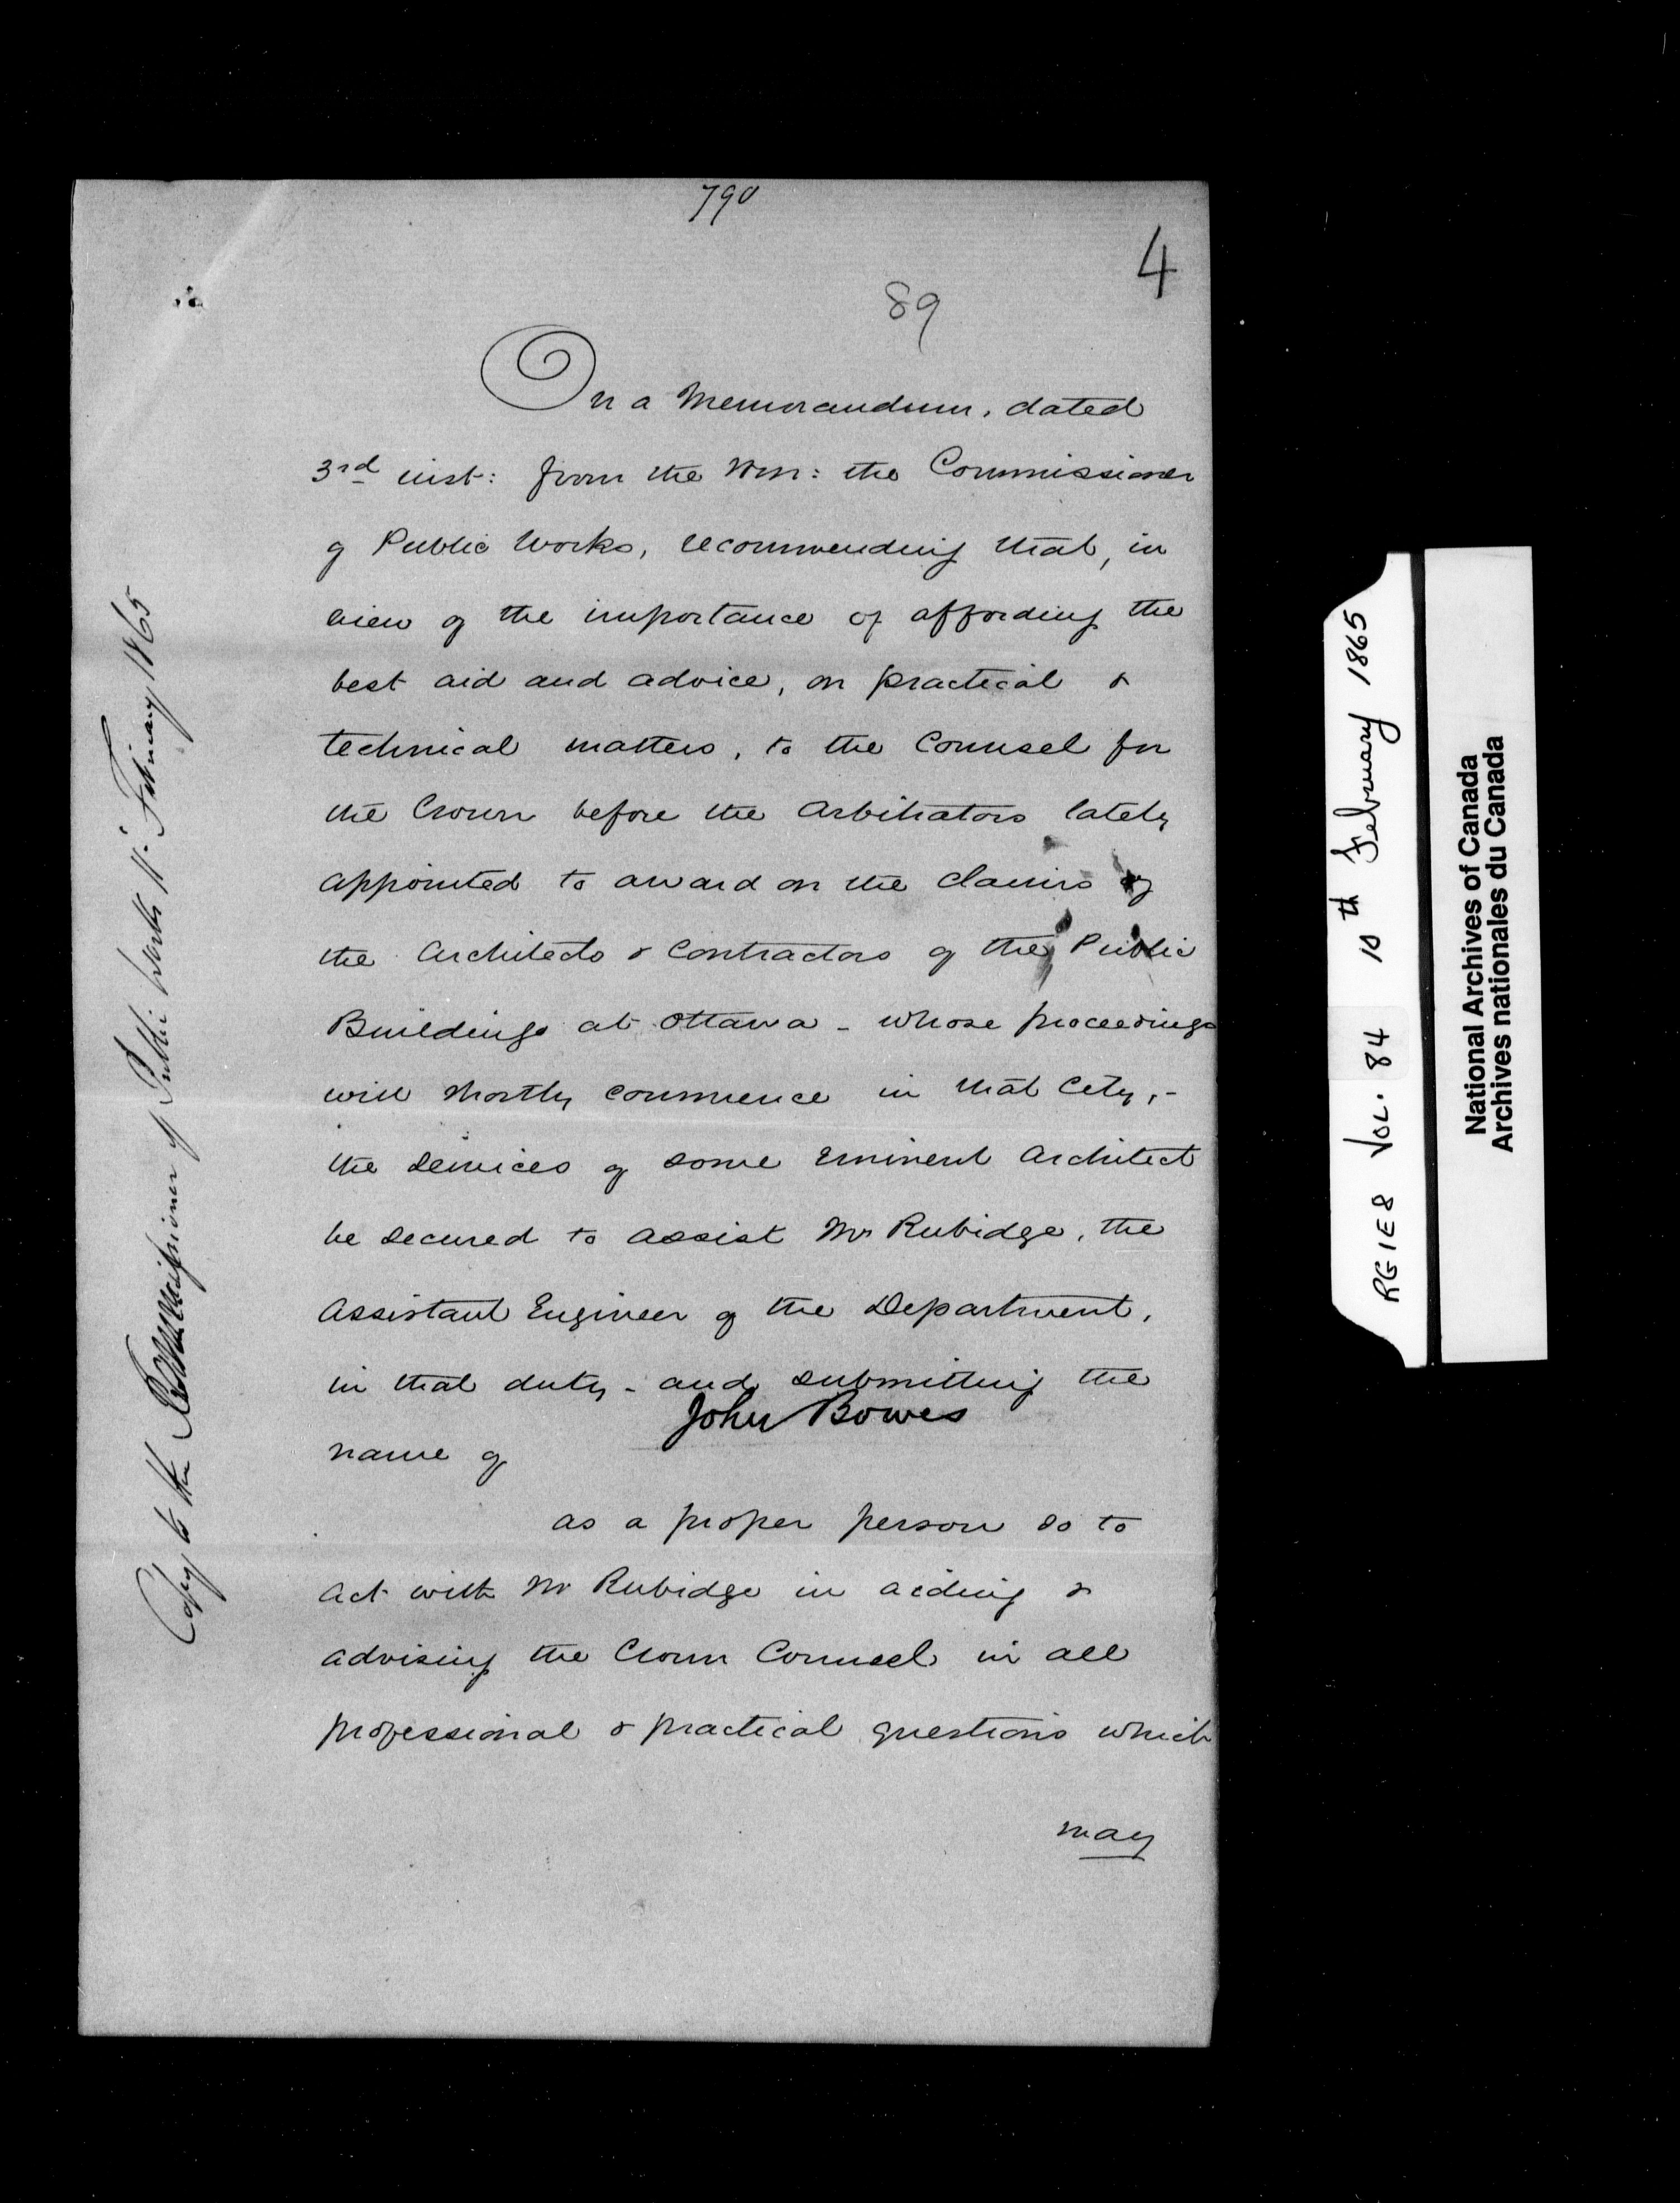 790
4
89
On a Memorandum, dated
3rd inst: from the Hon: the Commissioner
of Public Works, recommending that, in
view of the importance of affording the
best aid and advice, on practical &
technical matters, to the Counsel for
the Crown before the Arbitrators lately
appointed to award on the claims of
the Architects & Contractors of the Public
Buildings at Ottawa - whose proceedings
will shortly commence in that City, -
the services of some eminent Architect
be secured to assist Mr Rubidge, the
Assistant Engineer of the Department,
in that duty - and submitting the
John Bowes
name of
as a proper person so to
act with Mr Rubidge in aiding &
advising the Crown Counsel in all
professional & practical questions which
may
Copy to the Commissioner of Public Works 11. February 1865
RG1E8 VOL. 84 10th February 1865
National Archives of Canada
Archives nationales du Canada